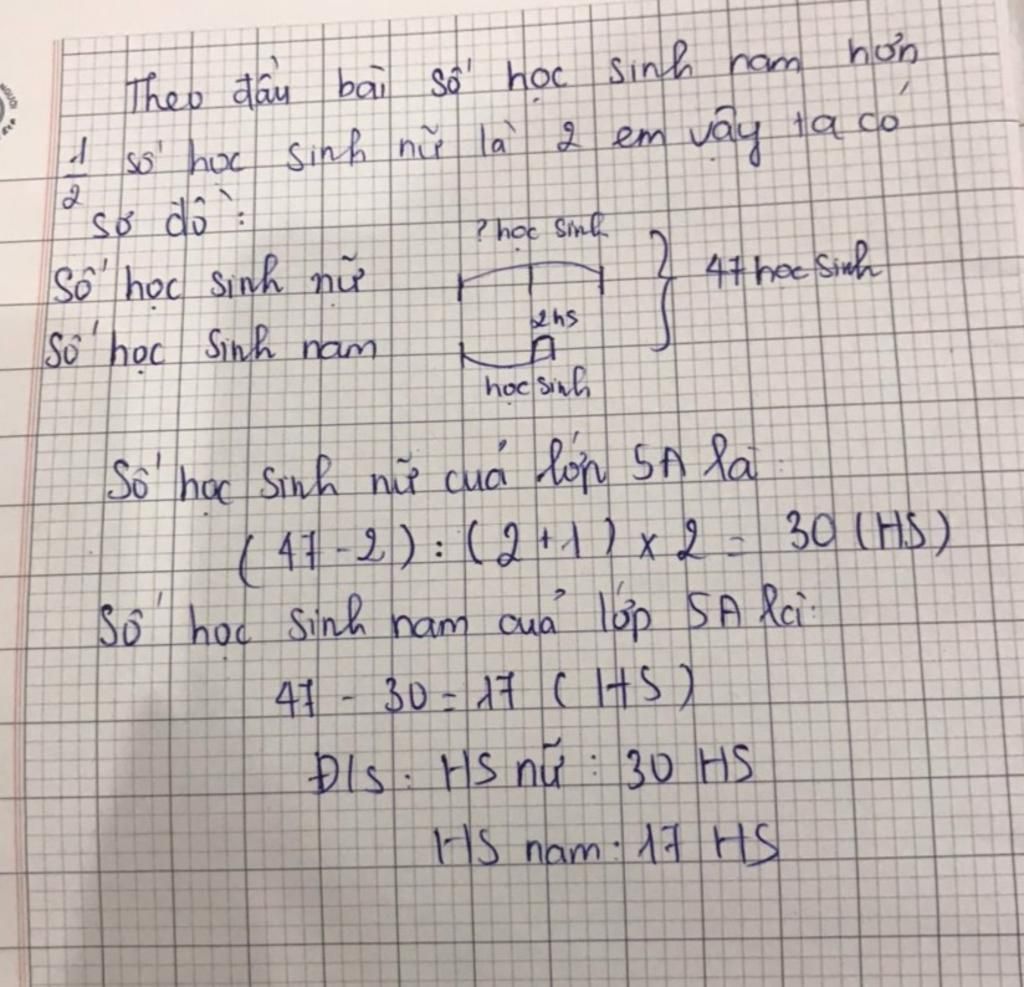 Theo đầu bài số học sinh nam hơn
1/2 số học sinh nữ là 2 em vậy ta có
sơ đồ:
? học sinh
Số học sinh nữ
47 học sinh
2hs
Số học sinh nam
học sinh
Số học sinh nữ của lớp 5A là:
(47 - 2) : (2 + 1) x 2 = 30 (HS)
Số học sinh nam của lớp 5A là:
47 - 30 = 17 (HS)
Đ/S: HS nữ: 30 HS
HS nam: 17 HS